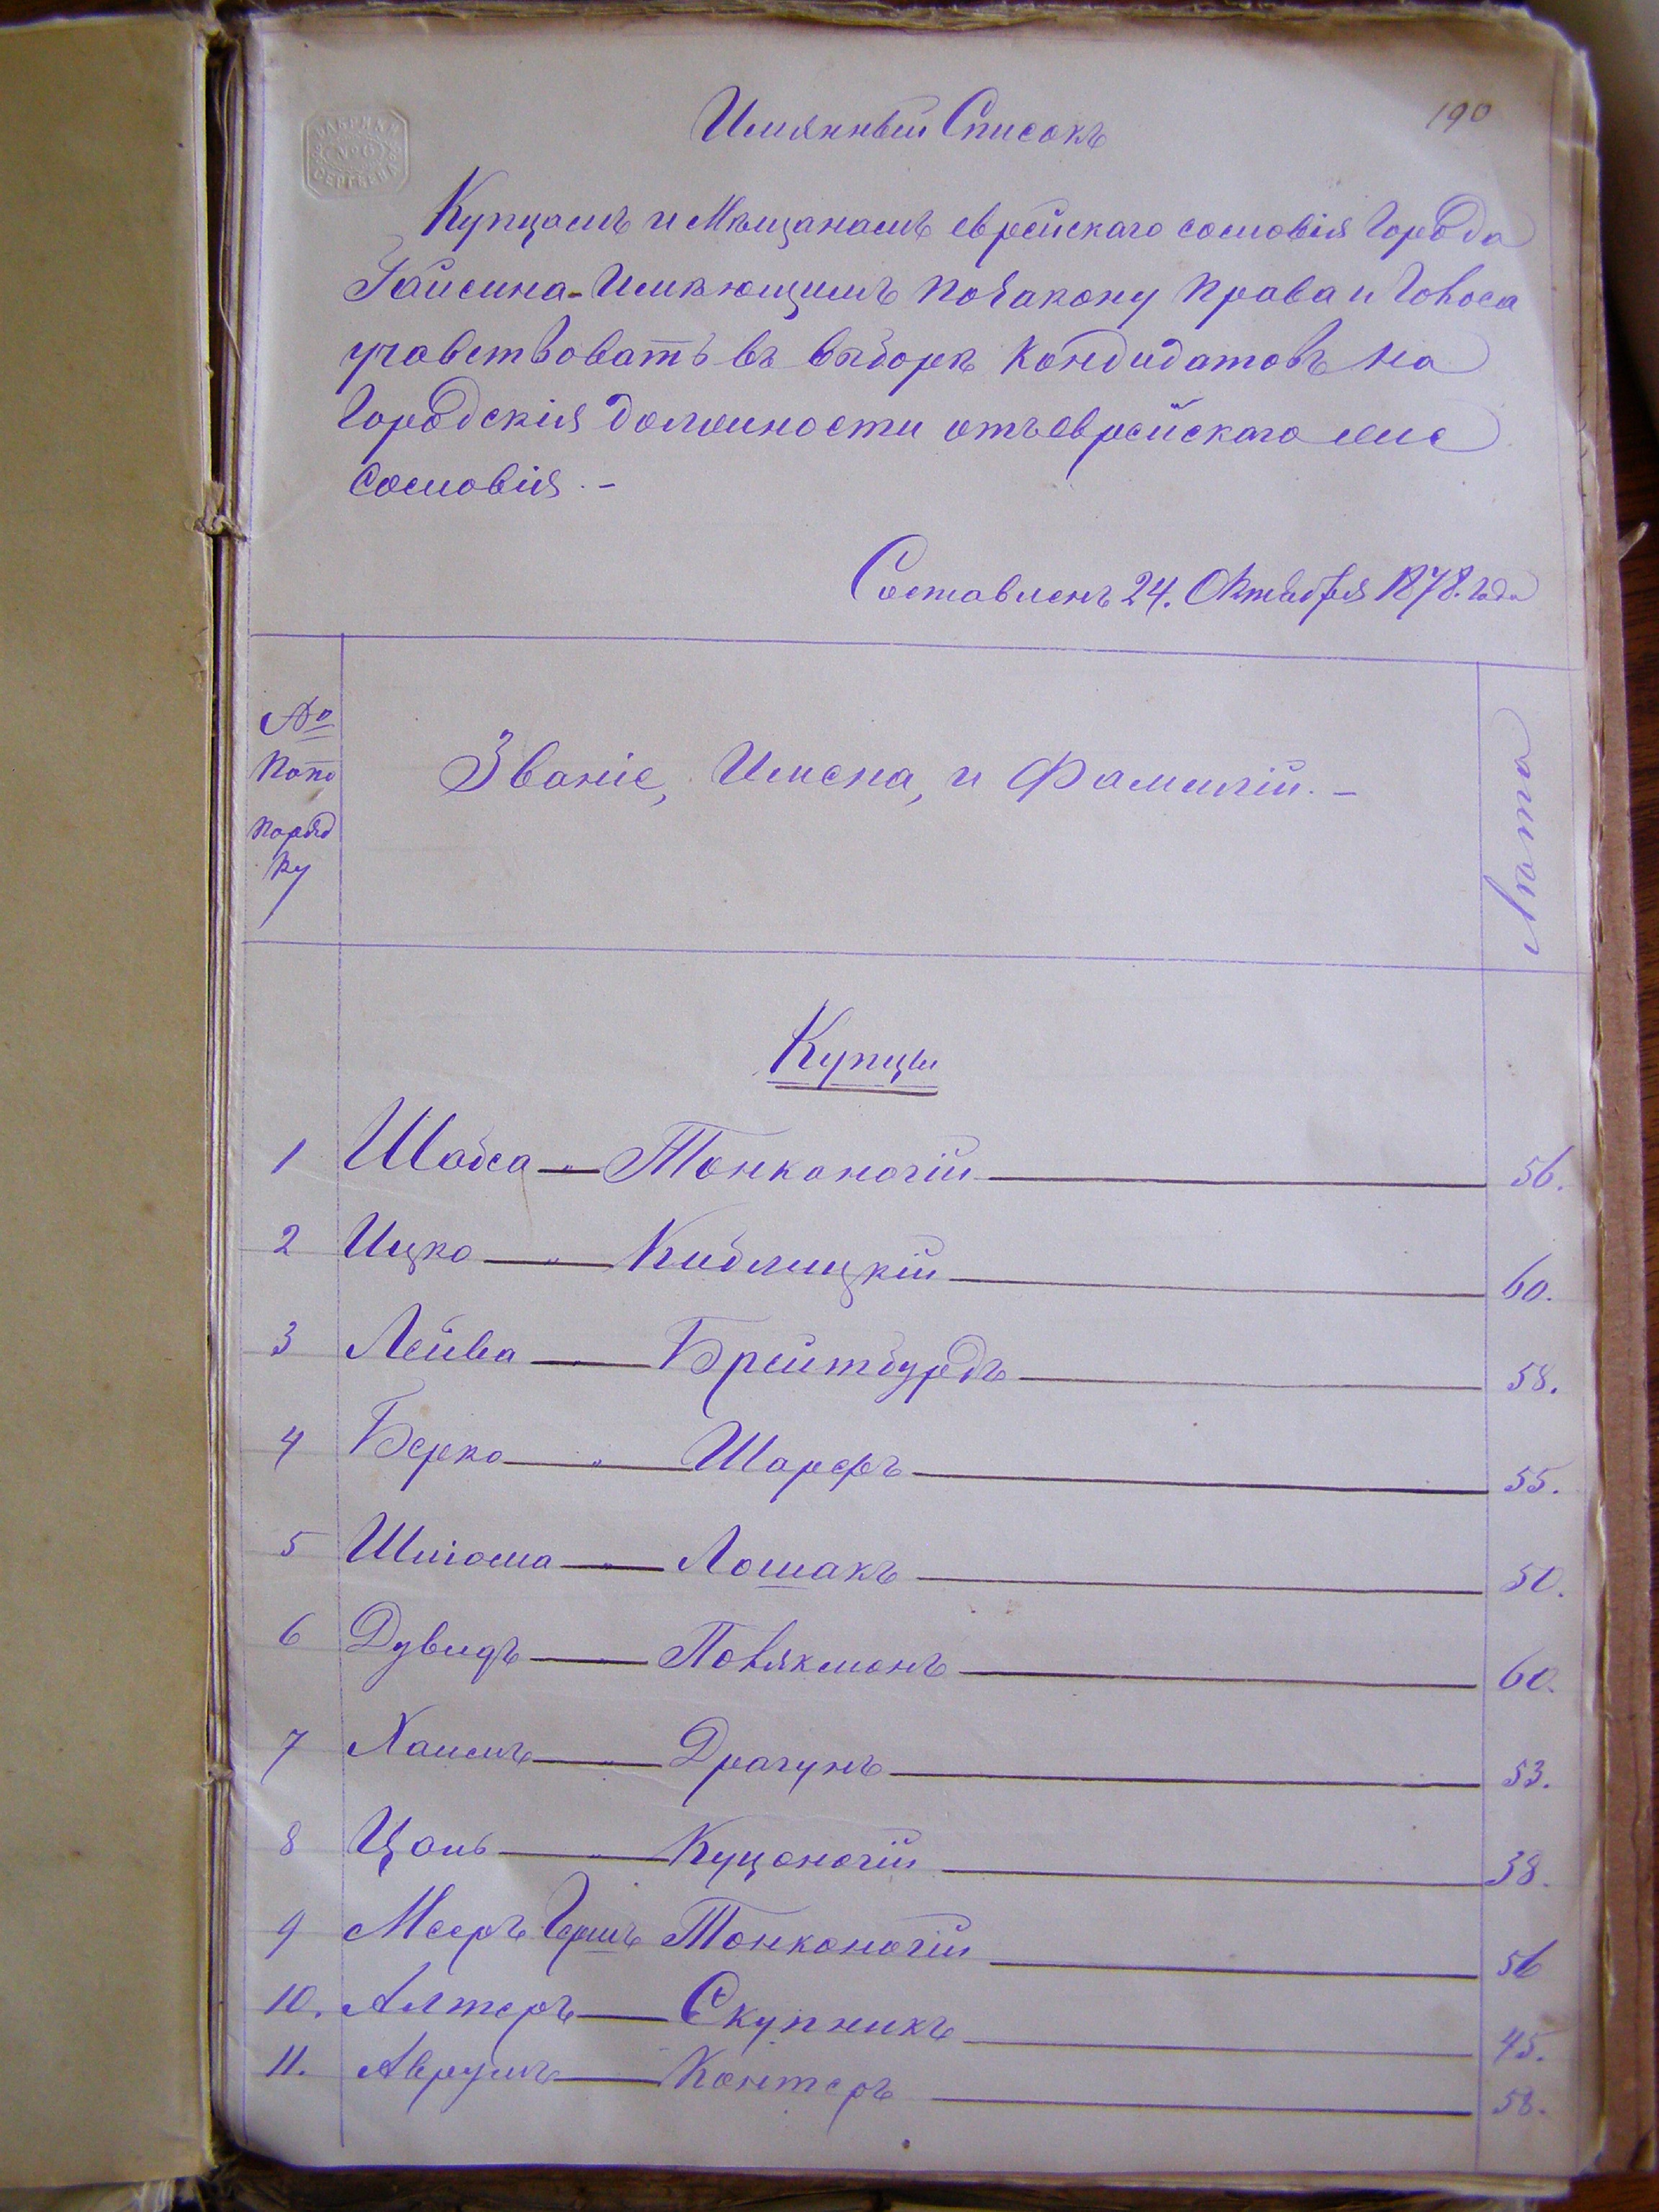 190
ФАБРИКИ
№ 6
СЕРГѢЕВА
Имянный Списокъ
Купцамъ и Мѣщанамъ еврейскаго сословія Города
Гайсина - Имѣющимъ по закону права и Голоса
учавствовать въ выборѣ Кандидатовъ на
Городскія должности отъ еврейскаго же
сословія. -
Составленъ 24. Октября 1878. года
№
по
поряд
ку
Званіе, Имена, и Фамиліи. -
Лѣта
Купцы
1 Шабса " Тонконогій 56.
2 Ицко " Киблицкій 60.
3 Лейва " Брейтбурдъ 58.
4 Берко " Шарфъ 55.
5 Шліома " Лошакъ 50.
6 Дувидъ " Полякманъ 60.
7 Хаимъ " Драгунъ 53.
8 Цаль " Куцоногій 38.
9 Мееръ Гершъ Тонконогій 56
10. Алтеръ Скупникъ 45.
11. Аврумъ Кантеръ 58.